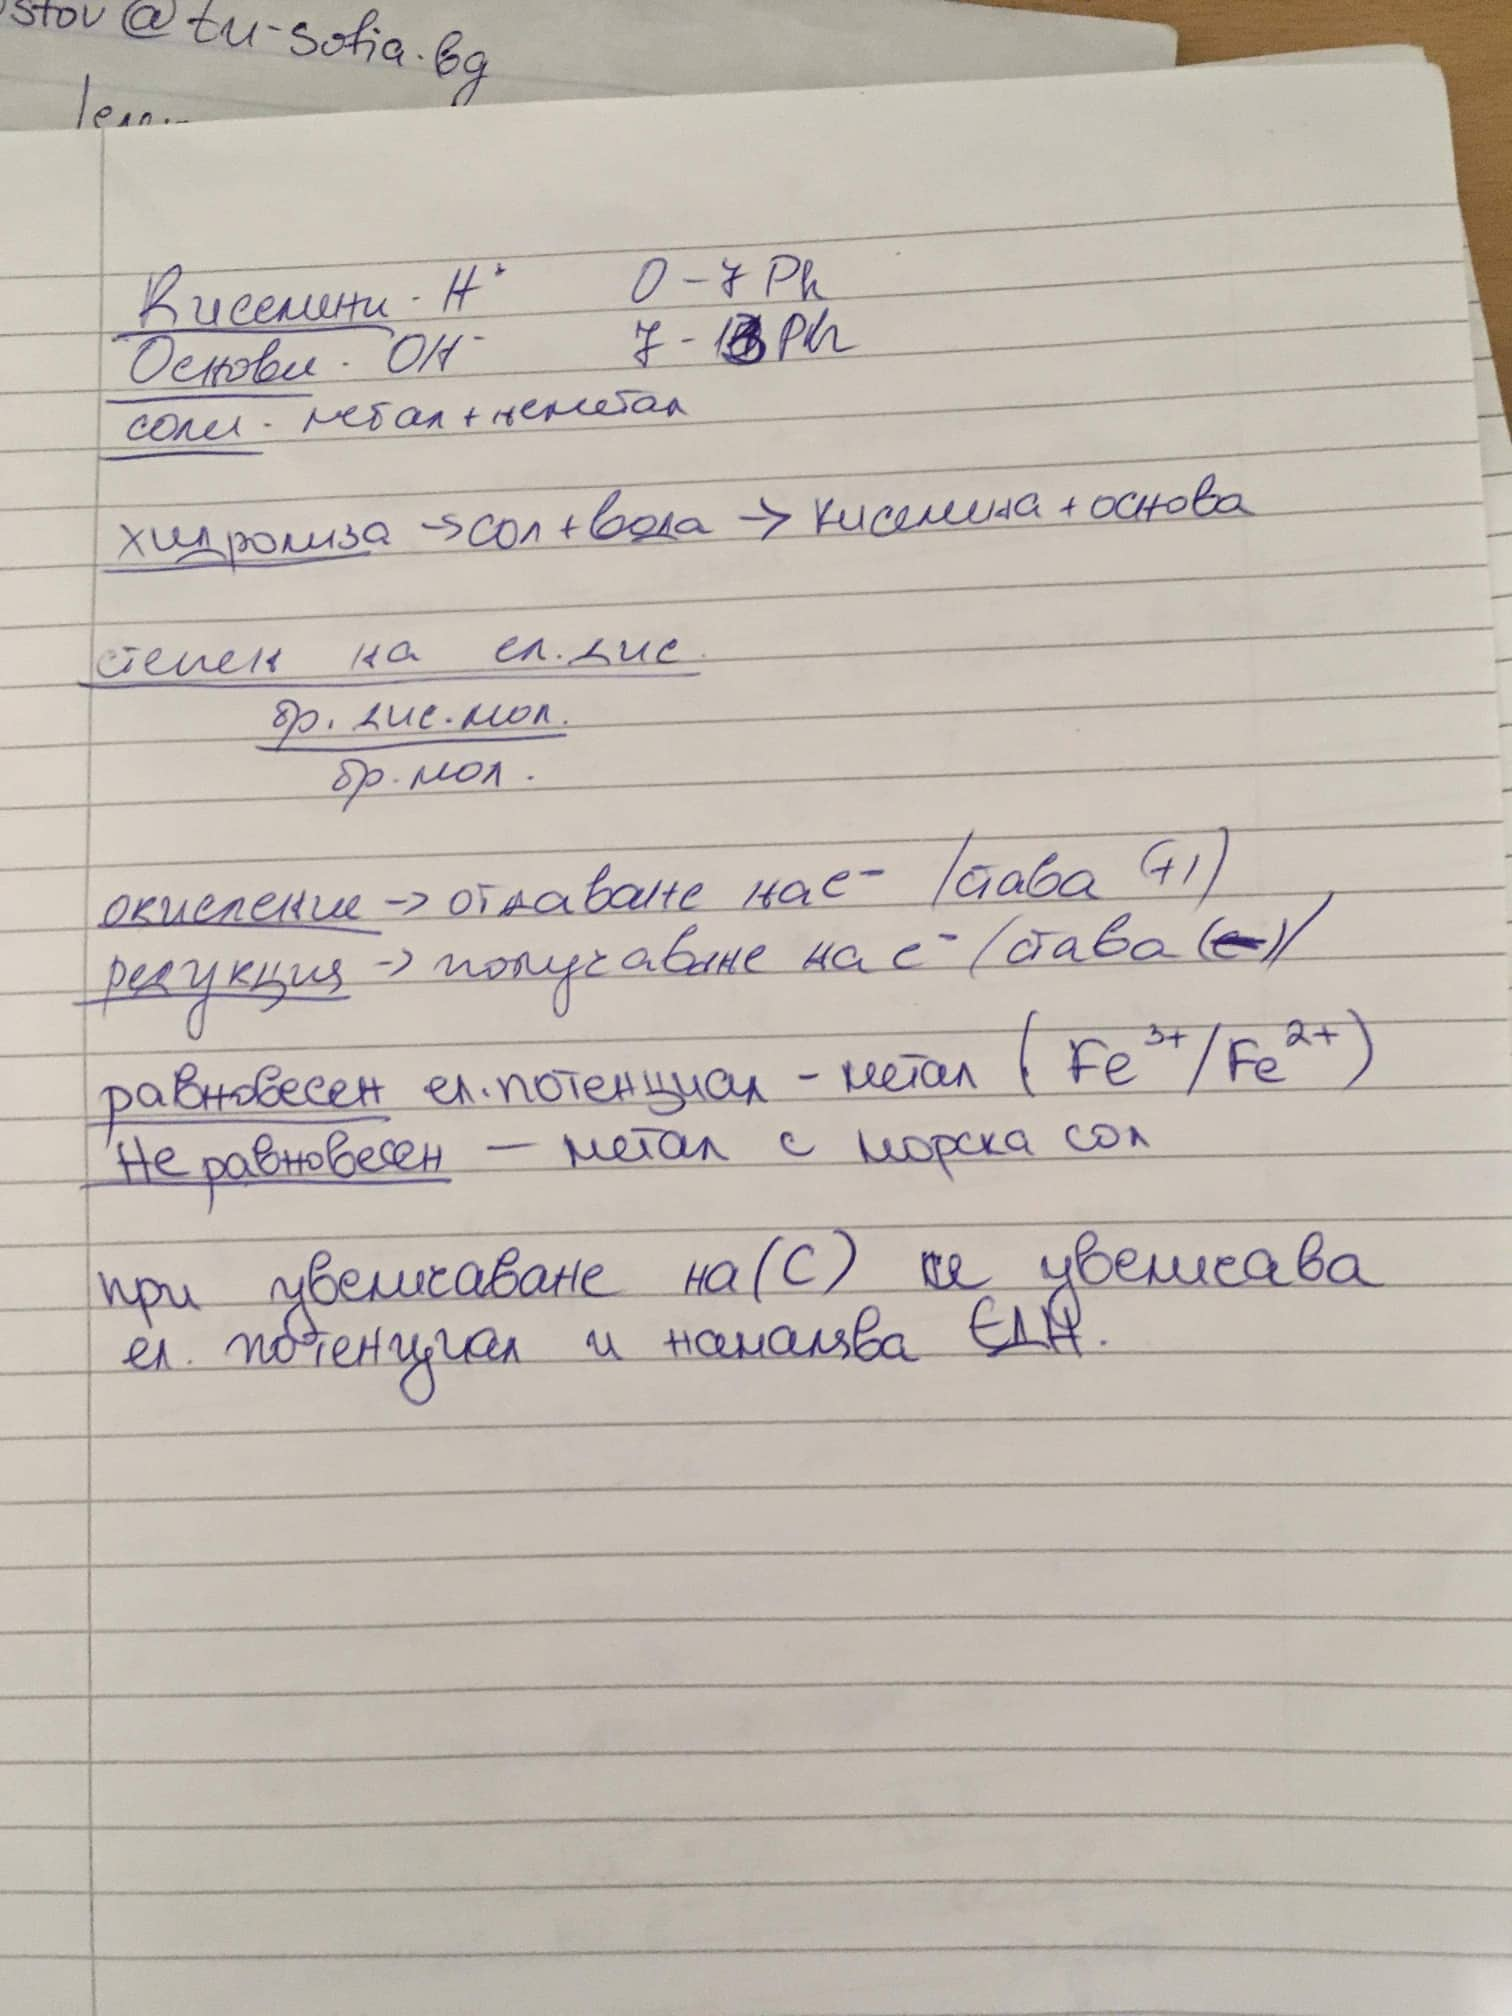 stov@tu-sofia.bg
Киселини - H⁺ 0 - 7 Ph
Основи - OH⁻ 7 - Ph
соли - метал + неметал
хидролиза → сол + вода → киселина + основа
степен на ел. дис.
бр. дис. мол.
бр. мол.
окисление → отдаване на e⁻ /става (+)/
редукция → получаване на e⁻ /става (-)/
равновесен ел. потенциал - метал (Fe³⁺/Fe²⁺)
Неравновесен — метал с морска сол
при увеличаване на (C) се увеличава
ел. потенциал и намалява ЕДН.